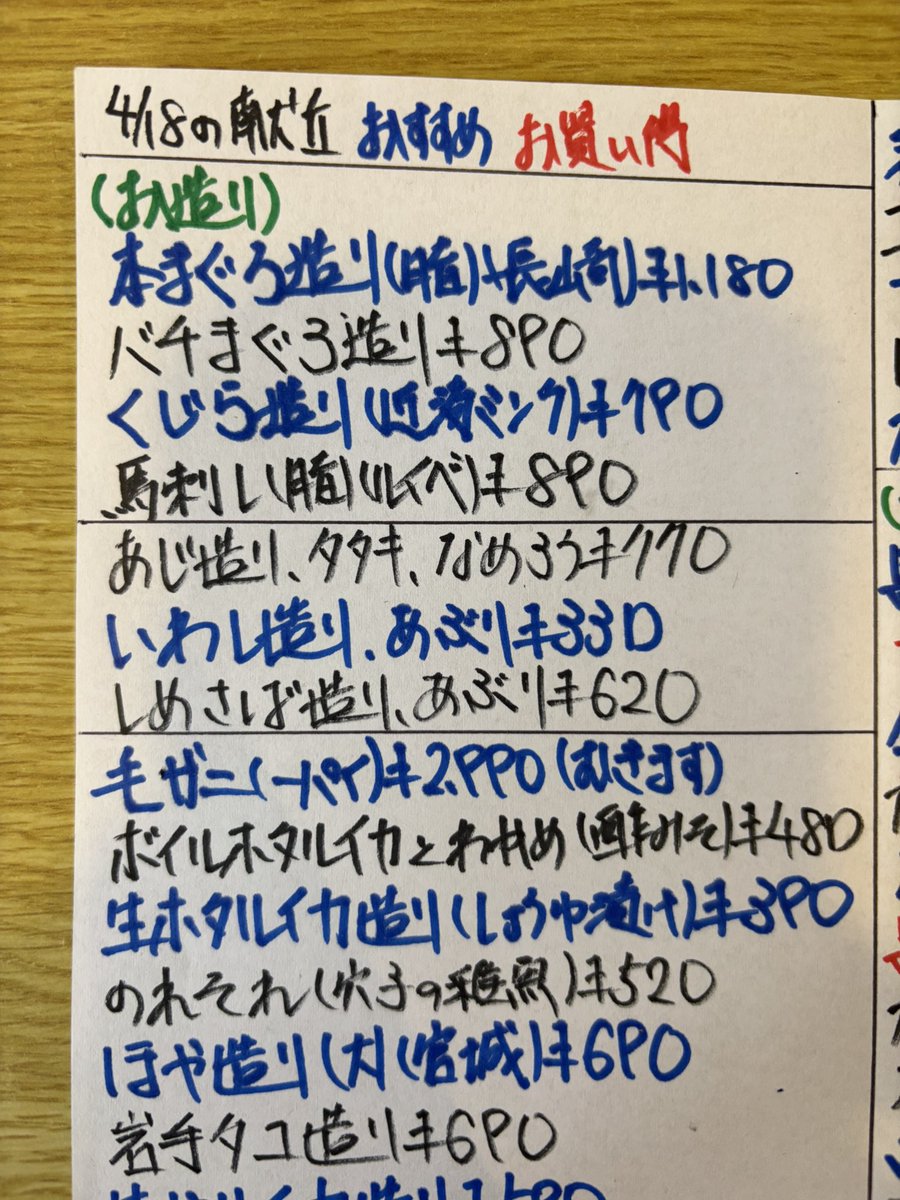 4/18の献立 おすすめ お買い得
(お造り)
本まぐろ造り(脂)(長崎)¥1,180
バチまぐろ造り¥890
くじら造り(近海ミンク)¥790
馬刺し(脂)(ルイベ)¥890
あじ造り、タタキ、なめろう¥770
いわし造り、あぶり¥330
しめさば造り、あぶり¥620
毛ガニ(一パイ)¥2,990(むきます)
ボイルホタルイカとわかめ(酢みそ)¥480
生ホタルイカ造り(しょうゆ漬け)¥390
のれそれ(穴子の稚魚)¥520
ほや造り(大)(宮城)¥690
岩手タコ造り¥690